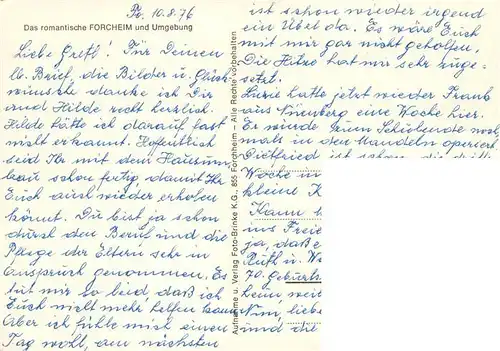 Fo. 10.8.76
Das romantische FORCHEIM und Umgebung
Liebe Gretl! Für Deinen
lb. Brief, die Bilder u. Glück-
wünsche danke ich Dir
und Hilde recht herzlich.
Hilde hätte ich darauf fast
nicht erkannt. Hoffentlich
seid Ihr mit dem Hausum-
bau schon fertig damit Ihr
Euch auch wieder erholen
könnt. Du bist ja schon
durch den Beruf und die
Pflege der Eltern sehr in
Anspruch genommen. Es
tut mir so leid, daß ich
Euch nicht mehr helfen kann
Aber ich fühle mich einen
Tag wohl, am nächsten
Aufnahme u. Verlag Foto-Brinke K.G., 855 Forchheim – Alle Rechte vorbehalten
ist schon wieder irgend
ein Übel da. Es wäre Euch
mit mir gar nicht geholfen,
Die Hitze hat mir sehr zuge-
setzt.
hatte jetzt wieder
aus Nürnberg eine Woche hier.
Es wurde ihnen
mals in den Mandeln operiert.
Gottfried ist schon die dritte
Woche in
kleine K
Kann
ins Freie
ja, daß
Ruth u. W
70. Geburts
heim wei
Nun, liebe
und die